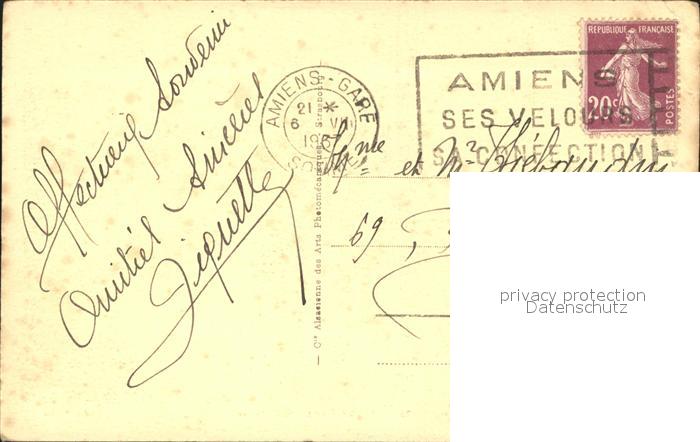 Affectueux Souvenir
Amitiés Sincères
AMIENS-GARE
21 *
6 VII
SOMME
AMIENS
SES VELOURS
SA CONFECTION
REPUBLIQUE FRANÇAISE
20c
POSTES
Cie Alsacienne des Arts Photomécaniques Strasbourg
Mme et Mr
69,
privacy protection
Datenschutz